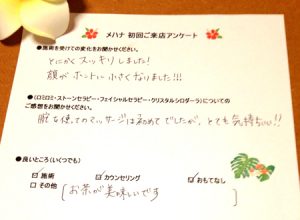 メハナ 初回ご来店アンケート
●施術を受けての変化をお聞かせください。
とにかくスッキリしました!
顔がホントに小さくなりました!!!
●(ロミロミ・ストーンセラピー・フェイシャルセラピー・クリスタルシロダーラ)についての
ご感想をお聞かせください。
腕を使ってのマッサージは初めてでしたが、とても気持ちいい!!
●良いところ(いくつでも)
☑ 施術 ☑ カウンセリング ☑ おもてなし
□ その他 (お茶が美味しいです)